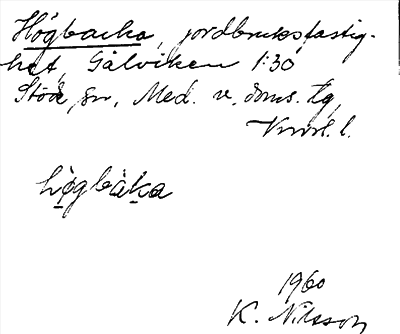 Högbacka, jordbruksfastig-
het, Gålviken 1:30
Stöde sn, Med. v. doms. tg,
Vnrl. l.
högbaka
1960
K. Nilsson